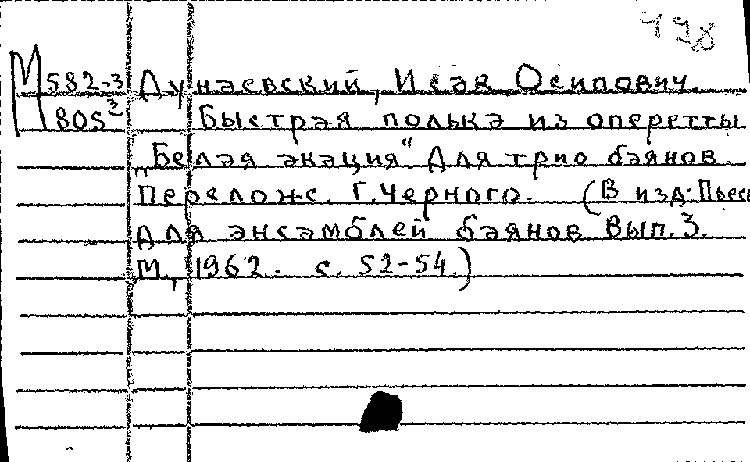 498
М 582-3 Дунаевский, Исаак Осипович.
805² Быстрая полька из оперетты
"Белая акация" Для трио баянов
Переложс. Г. Черного. (В изд: Пьесы
для энсамблей баянов. Вып. 3.
М., 1962. с. 52-54.)